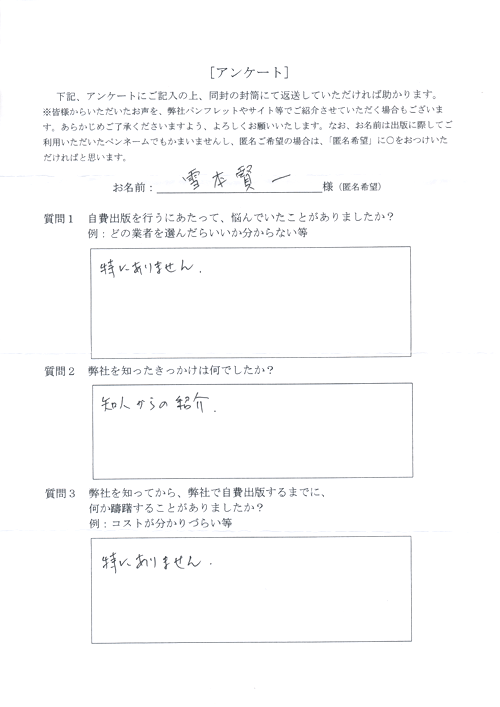 [アンケート]
下記、アンケートにご記入の上、同封の封筒にて返送していただければ助かります。
※皆様からいただいたお声を、弊社パンフレットやサイト等でご紹介させていただく場合もございま
す。あらかじめご了承くださいますよう、よろしくお願いいたします。なお、お名前は出版に際してご
利用いただいたペンネームでもかまいませんし、匿名ご希望の場合は、「匿名希望」に○をおつけいた
だければと思います。
お名前：雪本賢一様（匿名希望）
質問１ 自費出版を行うにあたって、悩んでいたことがありましたか？
例：どの業者を選んだらいいか分からない等
特にありません.
質問２ 弊社を知ったきっかけは何でしたか？
知人からの紹介.
質問３ 弊社を知ってから、弊社で自費出版するまでに、
何か躊躇することがありましたか？
例：コストが分かりづらい等
特にありません.